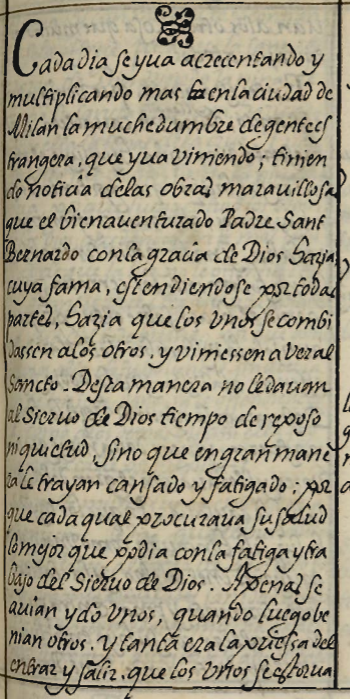 Cada dia se yua acrecentando y
multiplicando mas en la ciudad de
Milan la muchedumbre de gente es
trangera, que yua viniendo; tinien
do noticia de las obras marauillosas
que el bienauenturado Padre Sant
Bernardo con la gracia de Dios hazia
cuya fama, estendiendose por todas
partes, hazia que los vnos se combi
dassen a los otros, y viniessen a ver al
Sancto. Desta manera no le dauan
al Sieruo de Dios tiempo de reposo
ni quietud, sino que en gran mane
ra le trayan cansado y fatigado; por
que cada qual procuraua su salud
lo mejor que podia con la fatiga y tra
bajo del Sieruo de Dios. Apenas se
auian ydo vnos, quando luego be
nian otros. y tanta era la priessa del
entrar y salir, que los vnos se estorua